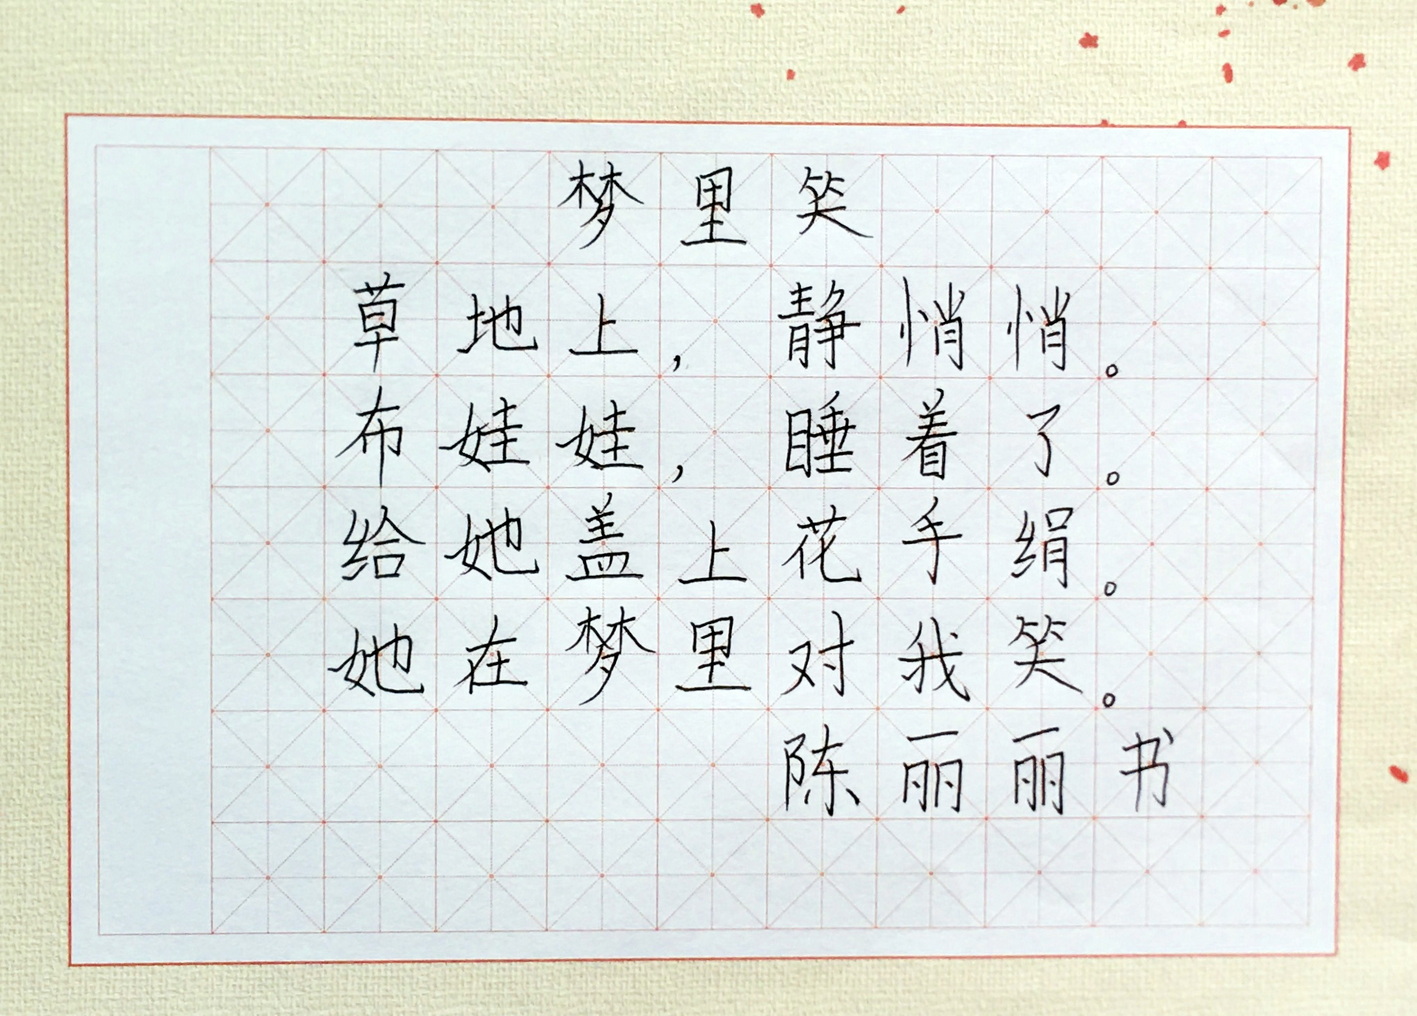 梦里笑
草地上，静悄悄。
布娃娃，睡着了。
给她盖上花手绢。
她在梦里对我笑。
陈丽丽书